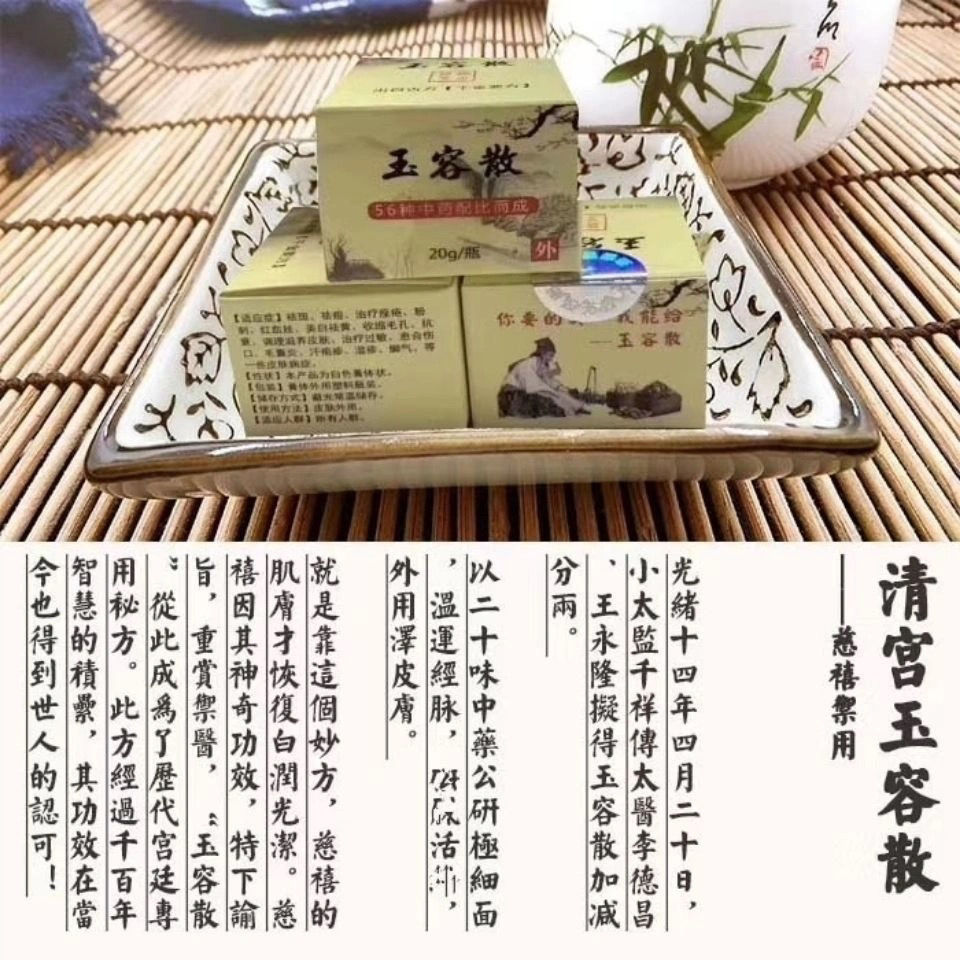 玉容散
玉容散
56种中药配比而成
20g/瓶
外
【适应症】祛斑、祛痘、治疗痤疮、粉
刺、红血丝、美白祛黄、收缩毛孔、抗
衰、调理滋养皮肤、治疗过敏、愈合伤
口、毛囊炎、汗疱疹、湿疹、脚气、等
一些皮肤病症。
【性状】本产品为白色膏体状。
【包装】膏体外用塑料瓶装。
【储存方式】避光常温储存。
【使用方法】皮肤外用。
【适应人群】所有人群。
你要的 我能给
——玉容散
清宫玉容散
——慈禧禦用
光緒十四年四月二十日，
小太監千祥傳太醫李德昌
、王永隆擬得玉容散加減
分兩。
以二十味中藥公研極細面
，溫運經脉， 活 ，
外用澤皮膚。
就是靠這個妙方，慈禧的
肌膚才恢復白潤光潔。慈
禧因其神奇功效，特下諭
旨，重賞禦醫，“玉容散
”從此成爲了歷代宫廷專
用秘方。此方經過千百年
智慧的積纍，其功效在當
今也得到世人的認可！